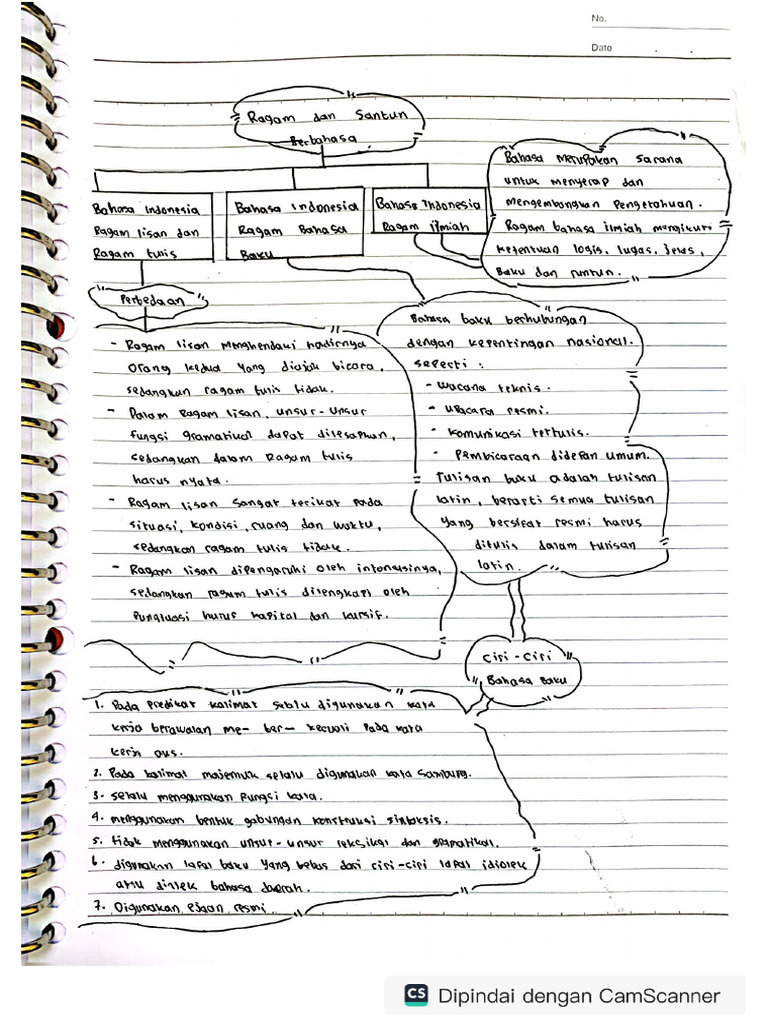 No.
Date
Ragam dan Santun
Berbahasa
Bahasa Indonesia
Ragam lisan dan
Ragam tulis
Bahasa Indonesia
Ragam Bahasa
Baku
Bahasa Indonesia
Ragam ilmiah
Bahasa merupakan sarana
untuk menyerap dan
mengembangkan pengetahuan.
Ragam bahasa ilmiah mengikuti
ketentuan logis, lugas, jelas,
Baku dan runtun.
Perbedaan
- Ragam lisan menghendaki hadirnya
orang kedua yang diajak bicara,
sedangkan ragam tulis tidak.
- Dalam Ragam lisan, unsur-unsur
fungsi gramatikal dapat dilesapkan,
sedangkan dalam Ragam tulis
harus nyata.
- Ragam lisan sangat terikat pada
situasi, kondisi, ruang dan waktu,
sedangkan ragam tulis tidak.
- Ragam lisan dipengaruhi oleh intonasinya,
sedangkan ragam tulis dilengkapi oleh
Pungtuasi huruf kapital dan kursif.
Bahasa baku berhubungan
dengan kepentingan nasional.
seperti :
- wacana teknis.
- upacara resmi.
- komunikasi tertulis.
- Pembicaraan didepan umum.
Tulisan baku adalah tulisan
latin, berarti semua tulisan
yang bersifat resmi harus
ditulis dalam tulisan
latin.
Ciri-ciri
Bahasa Baku
1. Pada Predikat kalimat selalu digunakan kata
kerja berawalan me- ber- kecuali pada kata
kerja aus.
2. Pada kalimat majemuk selalu digunakan kata sambung.
3. selalu menggunakan fungsi kata.
4. menggunakan bentuk gabungan konstruksi sintaksis.
5. tidak menggunakan unsur-unsur leksikal dan gramatikal.
6. digunakan lafal baku yang bebas dari ciri-ciri lafal idiolek
atau dialek bahasa daerah.
7. Digunakan ejaan resmi.
CS Dipindai dengan CamScanner